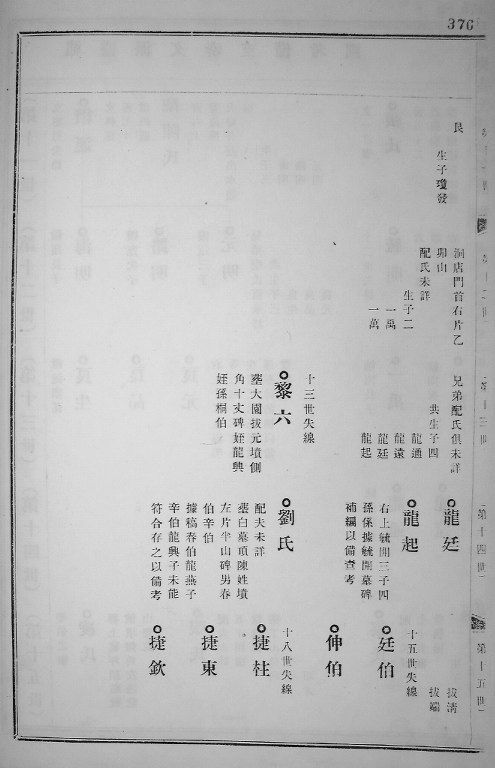 376
艮
生子瓊發
洞店門首右片乙
卯山
配氏未詳
生子二
一禹
一萬
兄弟配氏俱未詳
共生子四
龍通
龍遠
龍廷
龍起
十三世失線
黎六
塟大園拔元墳側
角十丈碑姪龍興
姪孫桐伯
龍廷
龍起
右上毓開三子四
孫係據毓開墓碑
補綱以備查考
劉氏
配夫未詳
塟白墓項陳姓墳
左片半山碑男春
伯辛伯
據稿春伯龍燕子
辛伯龍興子未能
符合存之以備考
拔清
拔端
十五世失線
廷伯
伸伯
十八世失線
捷柱
捷東
捷欽
第十三世
第十四世
第十五世